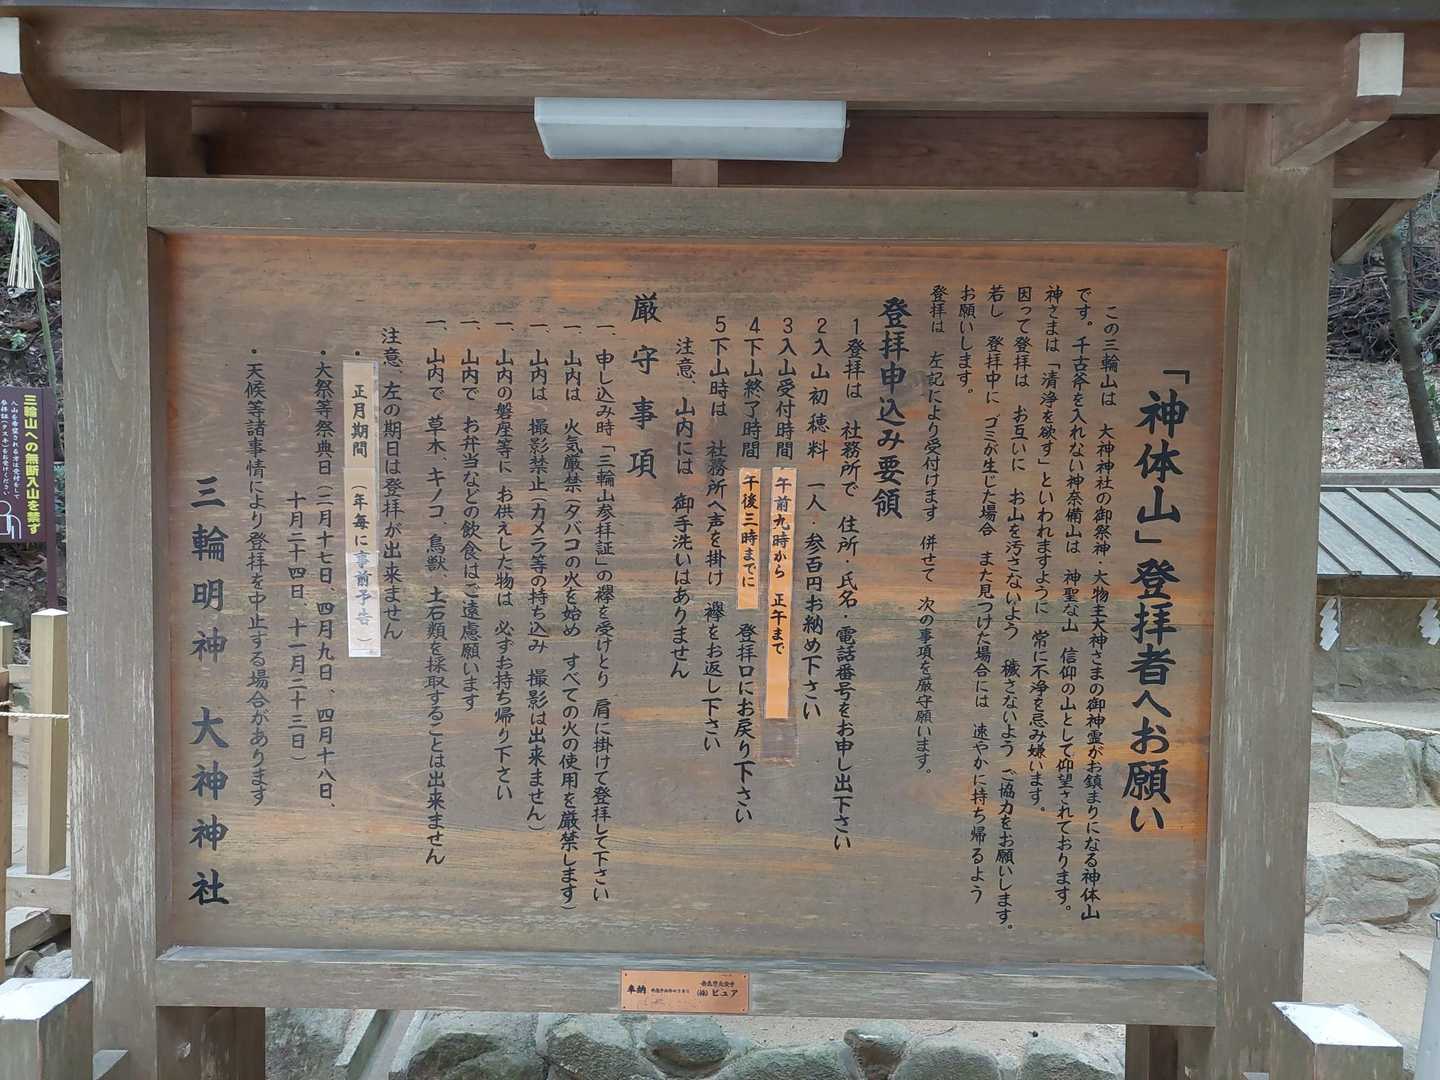 「神体山」登拝者へお願い
この三輪山は 大神神社の御祭神・大物主大神さまの御神霊がお鎮まりになる神体山
です。千古斧を入れない神奈備山は 神聖な山 信仰の山として仰望されております。
神さまは「清浄を欲す」といわれますように 常に不浄を忌み嫌います。
因って登拝は お互いに お山を汚さないよう 穢さないよう ご協力をお願いします。
若し 登拝中に ゴミが生じた場合 また見つけた場合には 速やかに持ち帰るよう
お願いします。
登拝は 左記により受付けます 併せて 次の事項を厳守願います。
登拝申込み要領
1登拝は 社務所で 住所・氏名・電話番号をお申し出下さい
2入山初穂料 一人・参百円お納め下さい
3入山受付時間 午前九時から 正午まで
4下山終了時間 午後三時までに 登拝口にお戻り下さい
5下山時は 社務所へ声を掛け 襷をお返し下さい
注意、山内には 御手洗いはありません
厳守事項
一、申し込み時「三輪山参拝証」の襷を受けとり 肩に掛けて登拝して下さい
一、山内は 火気厳禁(タバコの火を始め すべての火の使用を厳禁します)
一、山内は 撮影禁止(カメラ等の持ち込み 撮影は出来ません)
一、山内の磐座等に お供えした物は 必ずお持ち帰り下さい
一、山内で お弁当などの飲食はご遠慮願います
一、山内で 草木、キノコ、鳥獣、土石類を採取することは出来ません
注意、左の期日は登拝が出来ません
・正月期間 (年毎に事前予告)
・大祭等祭典日(二月十七日、四月九日、四月十八日、
十月二十四日、十一月二十三日)
・天候等諸事情により登拝を中止する場合があります
三輪明神 大神神社
三輪山への無断入山を禁ず
入山を希望される方は受付をして
参拝証(タスキ)をお受けください
奉納
(株)ピュア